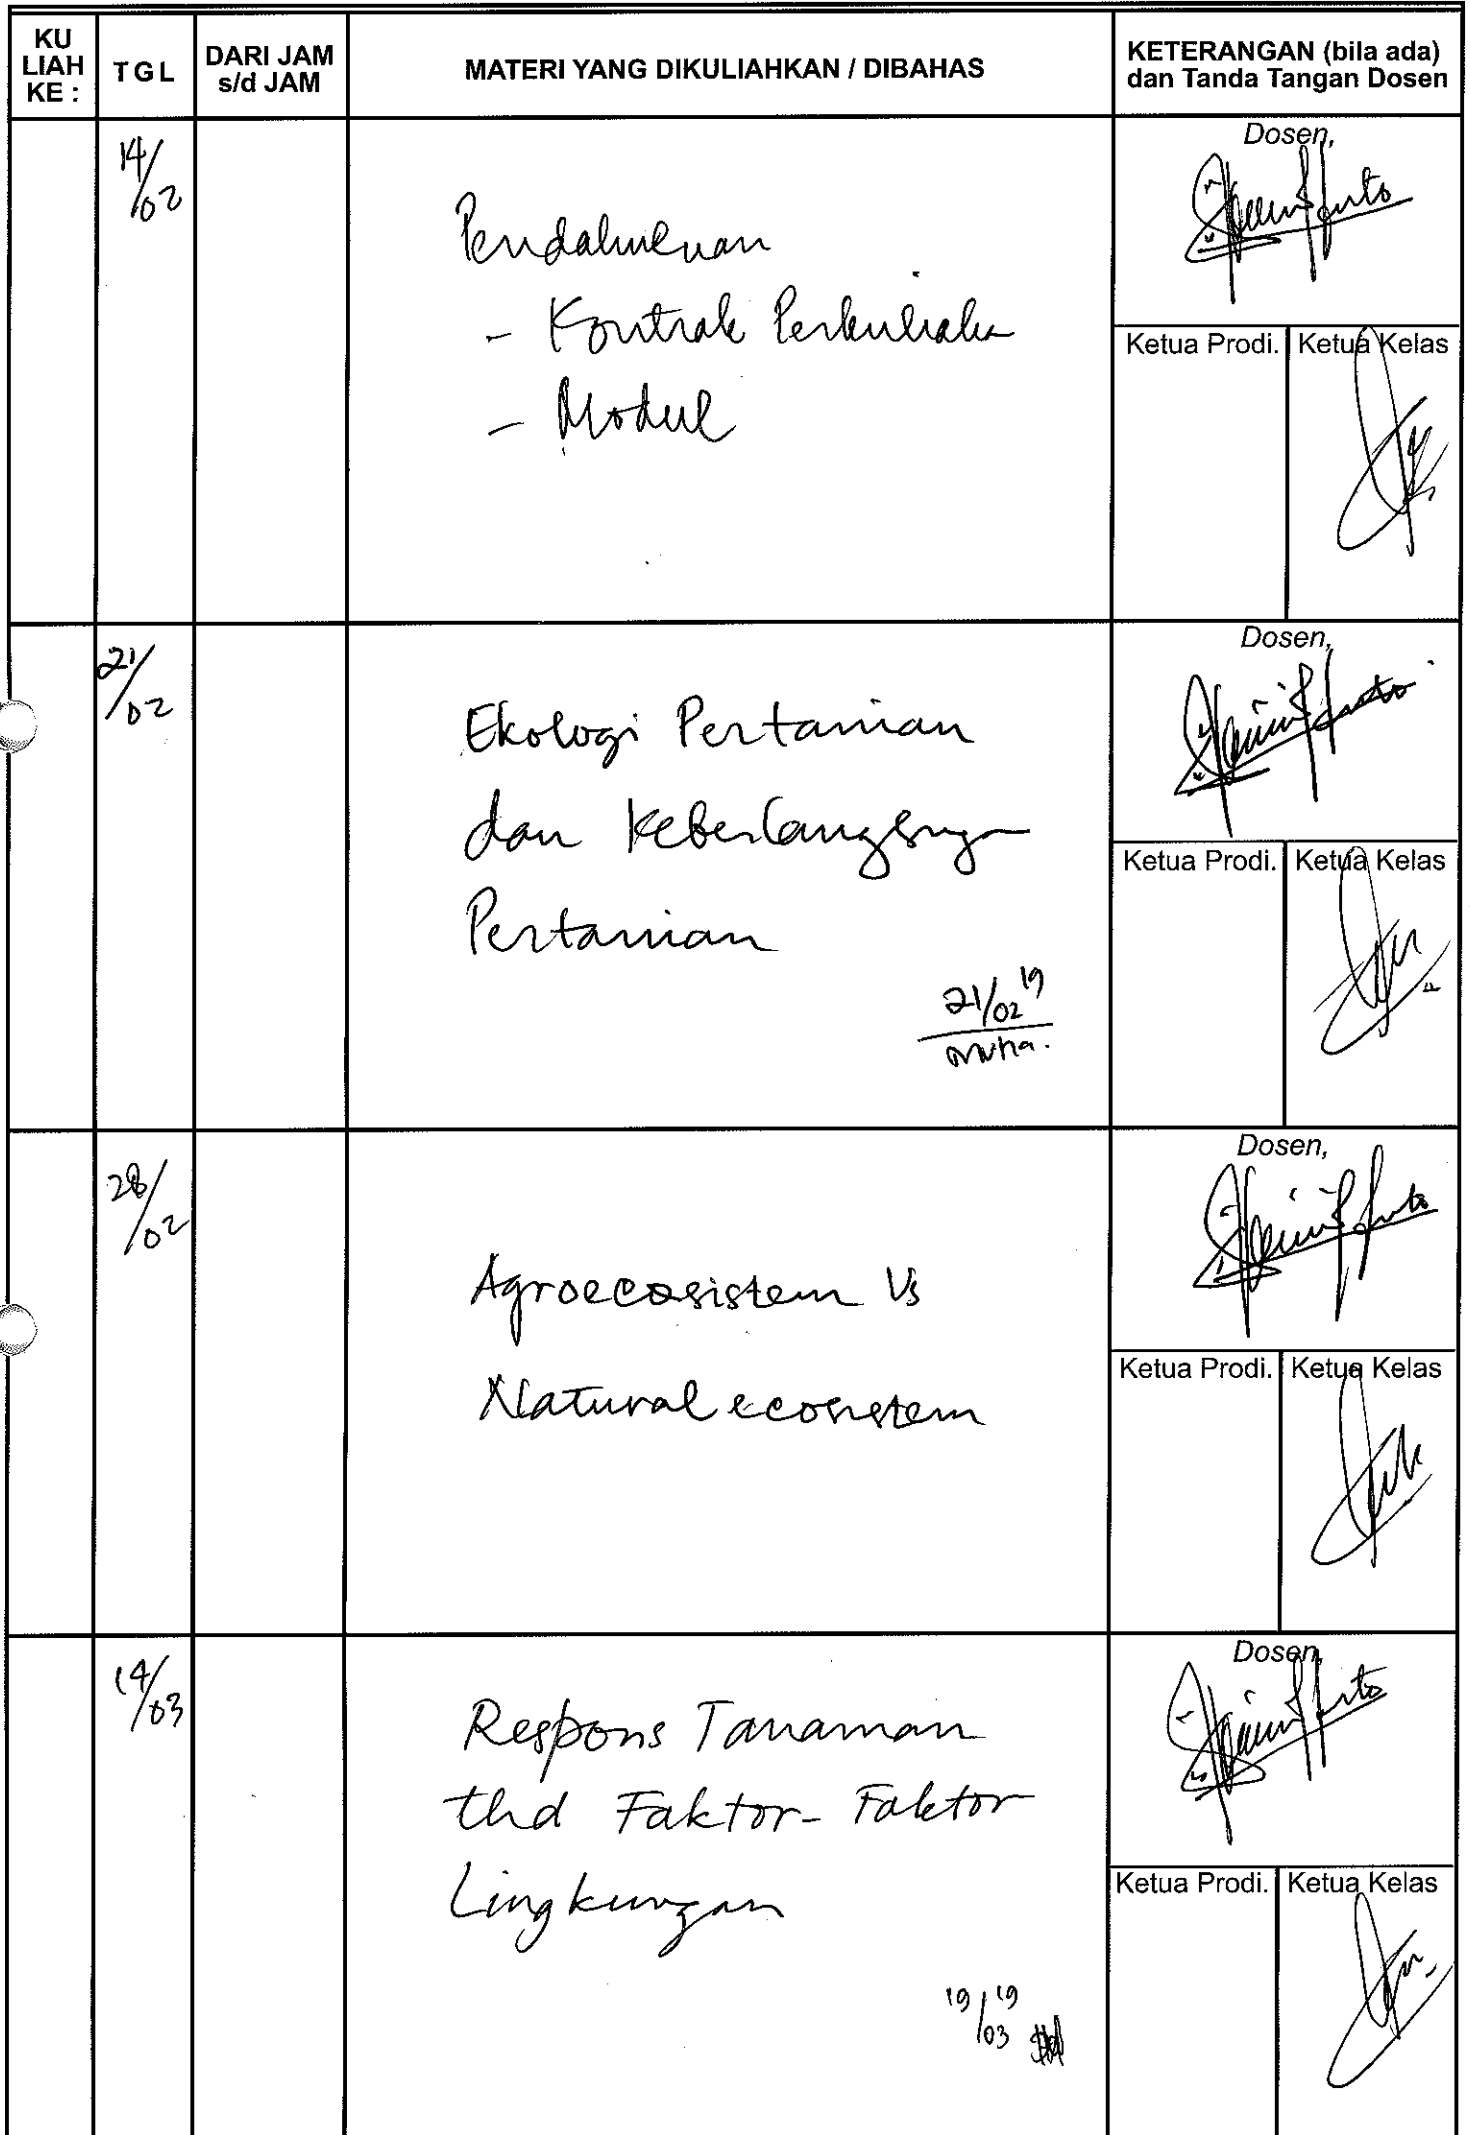 KU
LIAH
KE :
TGL
DARI JAM
s/d JAM
MATERI YANG DIKULIAHKAN / DIBAHAS
KETERANGAN (bila ada)
dan Tanda Tangan Dosen
14/02
Pendahuluan
- Kontrak Perkuliahan
- Modul
Dosen,
Ketua Prodi.
Ketua Kelas
21/02
Ekologi Pertanian
dan Keberlangsungan
Pertanian
21/02 19
Dosen,
Ketua Prodi.
Ketua Kelas
28/02
Agroecosistem Vs
Natural ecosistem
Dosen,
Ketua Prodi.
Ketua Kelas
14/03
Respons Tanaman
thd Faktor-Faktor
Lingkungan
19/03 19
Dosen,
Ketua Prodi.
Ketua Kelas